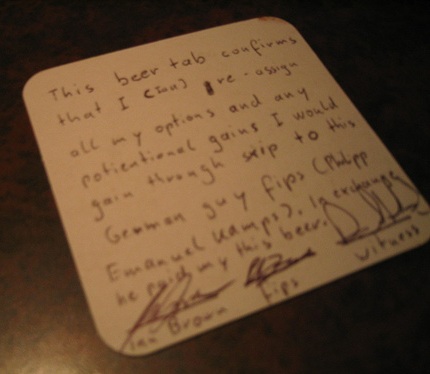 This beer tab confirms
that I (Ian) re-assign
all my options and any
potientional gains I would
gain through skip to this
German guy Fips (Philipp
Emanuel Kamps). In exchange
he paid my this beer.
witness
Ian Brown Fips